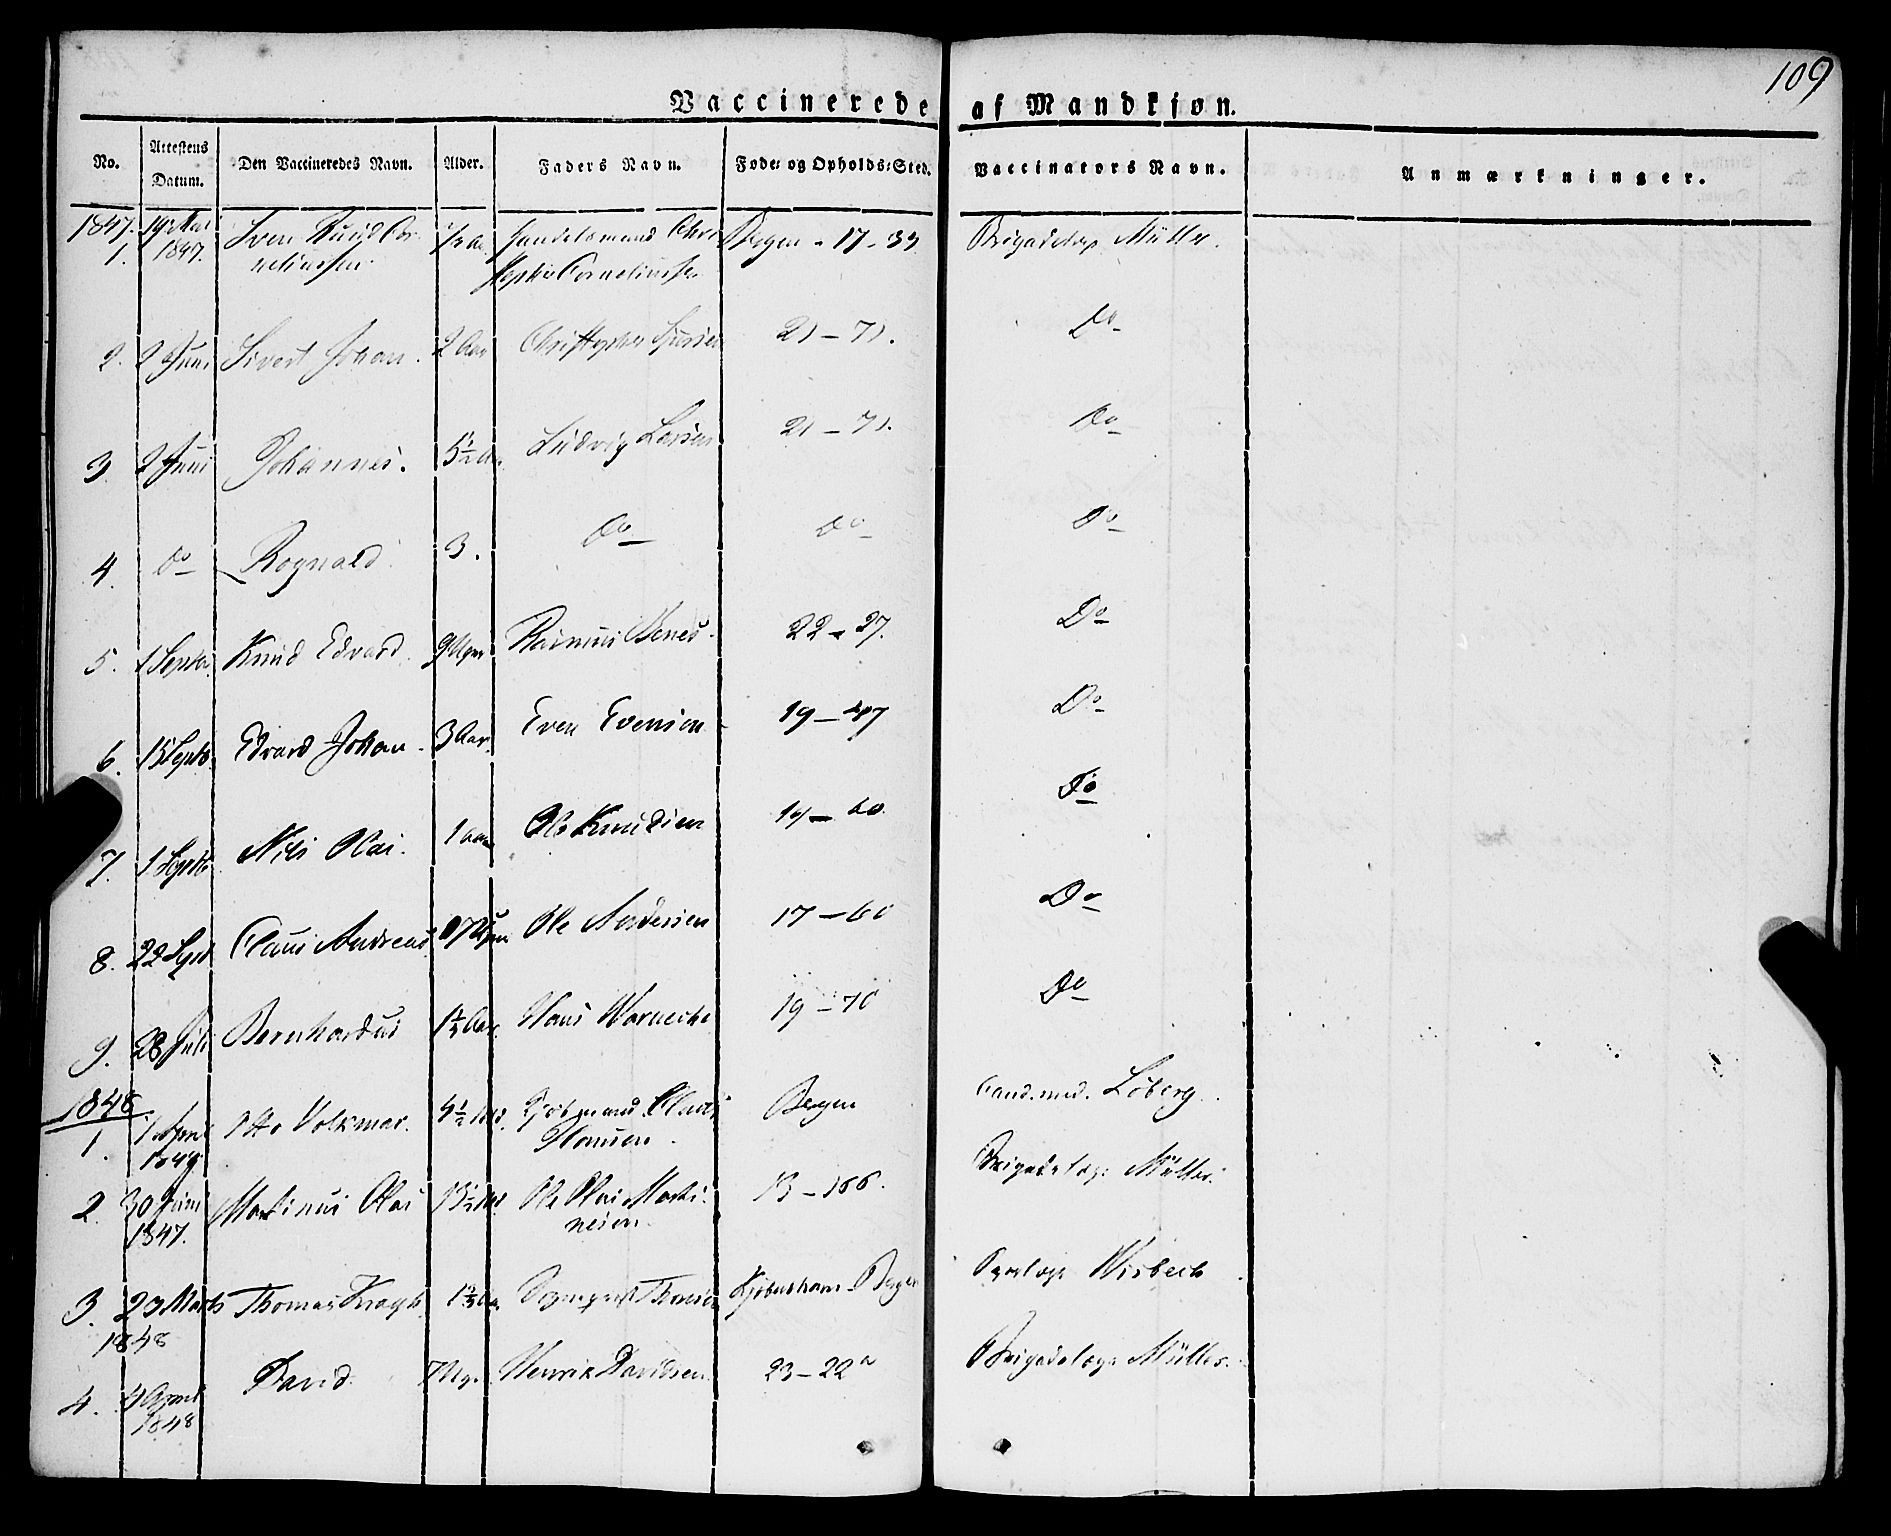 109
Vaccinerede af Mandkjøn.
No. Attestens Datum. Den Vaccineredes Navn. Alder. Faders Navn. Føde: og Opholds:Sted. Vaccinators Navn. Anmærkninger.
1847. 19 Mai Sven Cor Handelsmand Chri Bergen - 17-33 Brigadelæge Müller.
1. 1847. neliussen Corneliussen
2. 2 Juni Sivert Johan. 2 Aar Christopher 21-71. Do
3. 2 Juni Johannes. 5½ Aar Ludvig Larsen 21-71. Do
4. Do Rognald 3. Do Do Do
5. 1 Septbr Knud Edvard 9 Uger Rasmus 22-27. Do
6. 15 Septb. Edvard Johan. 3 Aar. Even Evensen 19-47 Do
7. 1 Septb Nils Olai. 1 Aar Ole Knudsen 19-60. Do
8. 22 Sept Claus Andreas 17 Uger Ole Andersen 17-60 Do
9. 28 Juli Bernhardus 1½ Aar. Hans Warnecke 19-70 Do
1848.
1. 1 April Otto Volkmar. 4½ Md. Claus Bergen Cand. med. Løberg.
Hansen.
2. 30 Juni Martinus Olai Ole Olai Marti 13-166. Brigadelæge Müller.
1847. nesen
3. 23 Marts Thomas Krogh Kjøbenhavn - Bergen Wisbech
1848
4. 4 April David 7 Ug. Henrik Davidsen 23-22a Brigadelæge Müller.
1848